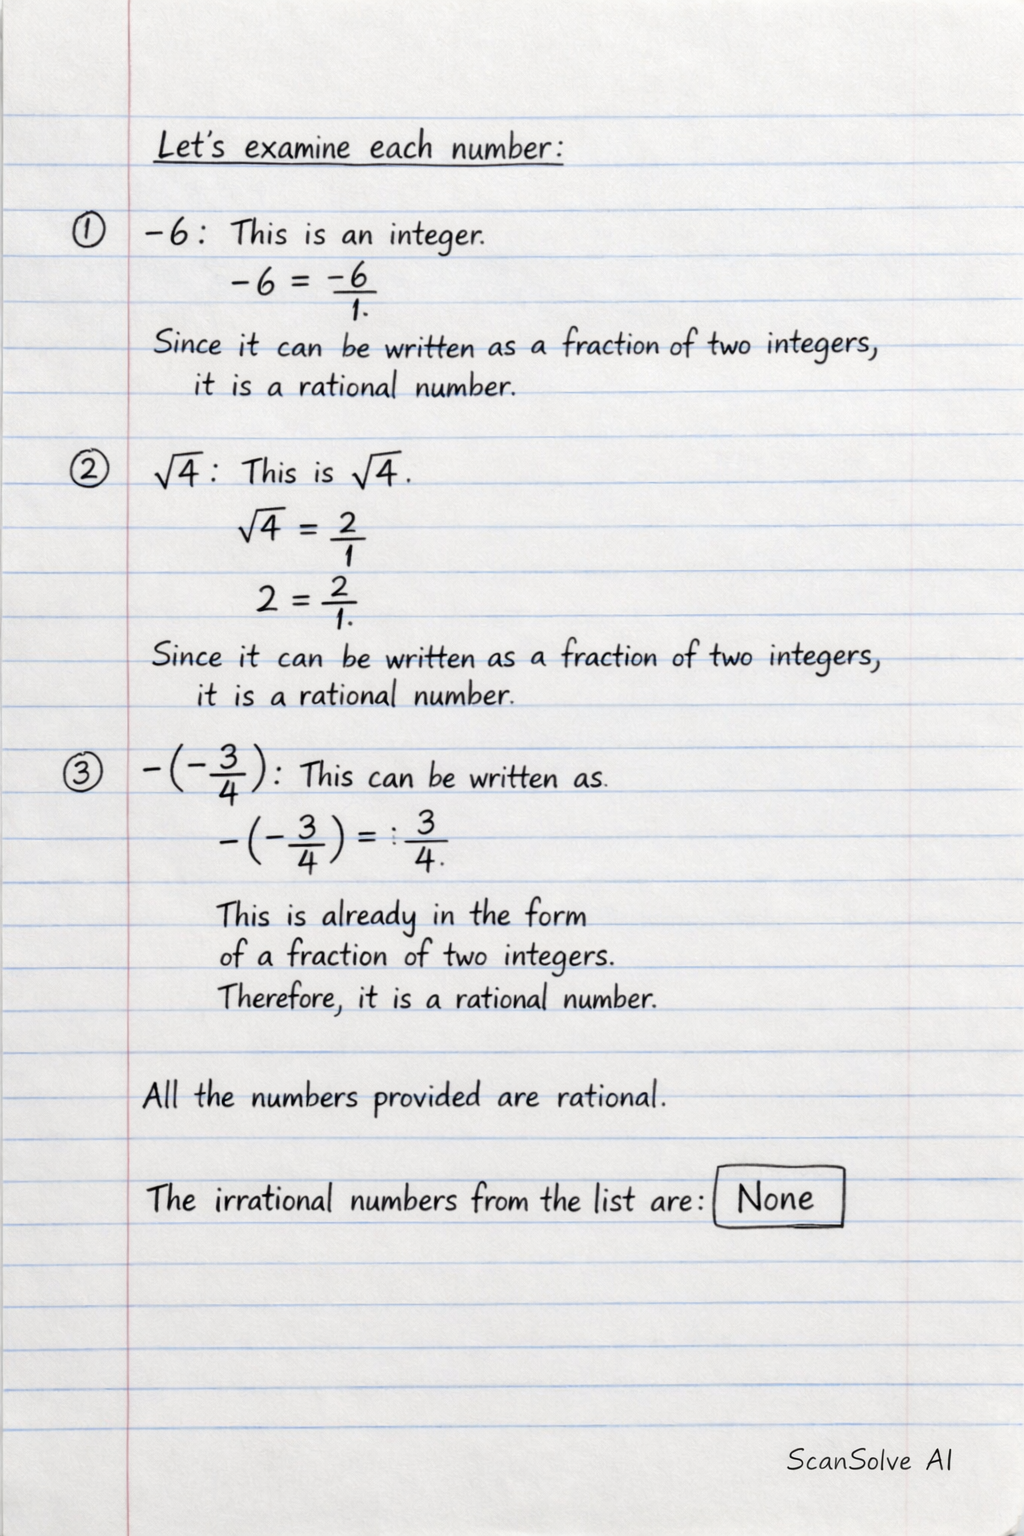 Let's examine each number:
① −6: This is an integer.
−6 = −6/1.
Since it can be written as a fraction of two integers,
it is a rational number.
② √4: This is √4.
√4 = 2/1
2 = 2/1.
Since it can be written as a fraction of two integers,
it is a rational number.
③ −(−3/4): This can be written as.
−(−3/4) = : 3/4.
This is already in the form
of a fraction of two integers.
Therefore, it is a rational number.
All the numbers provided are rational.
The irrational numbers from the list are: None
ScanSolve AI